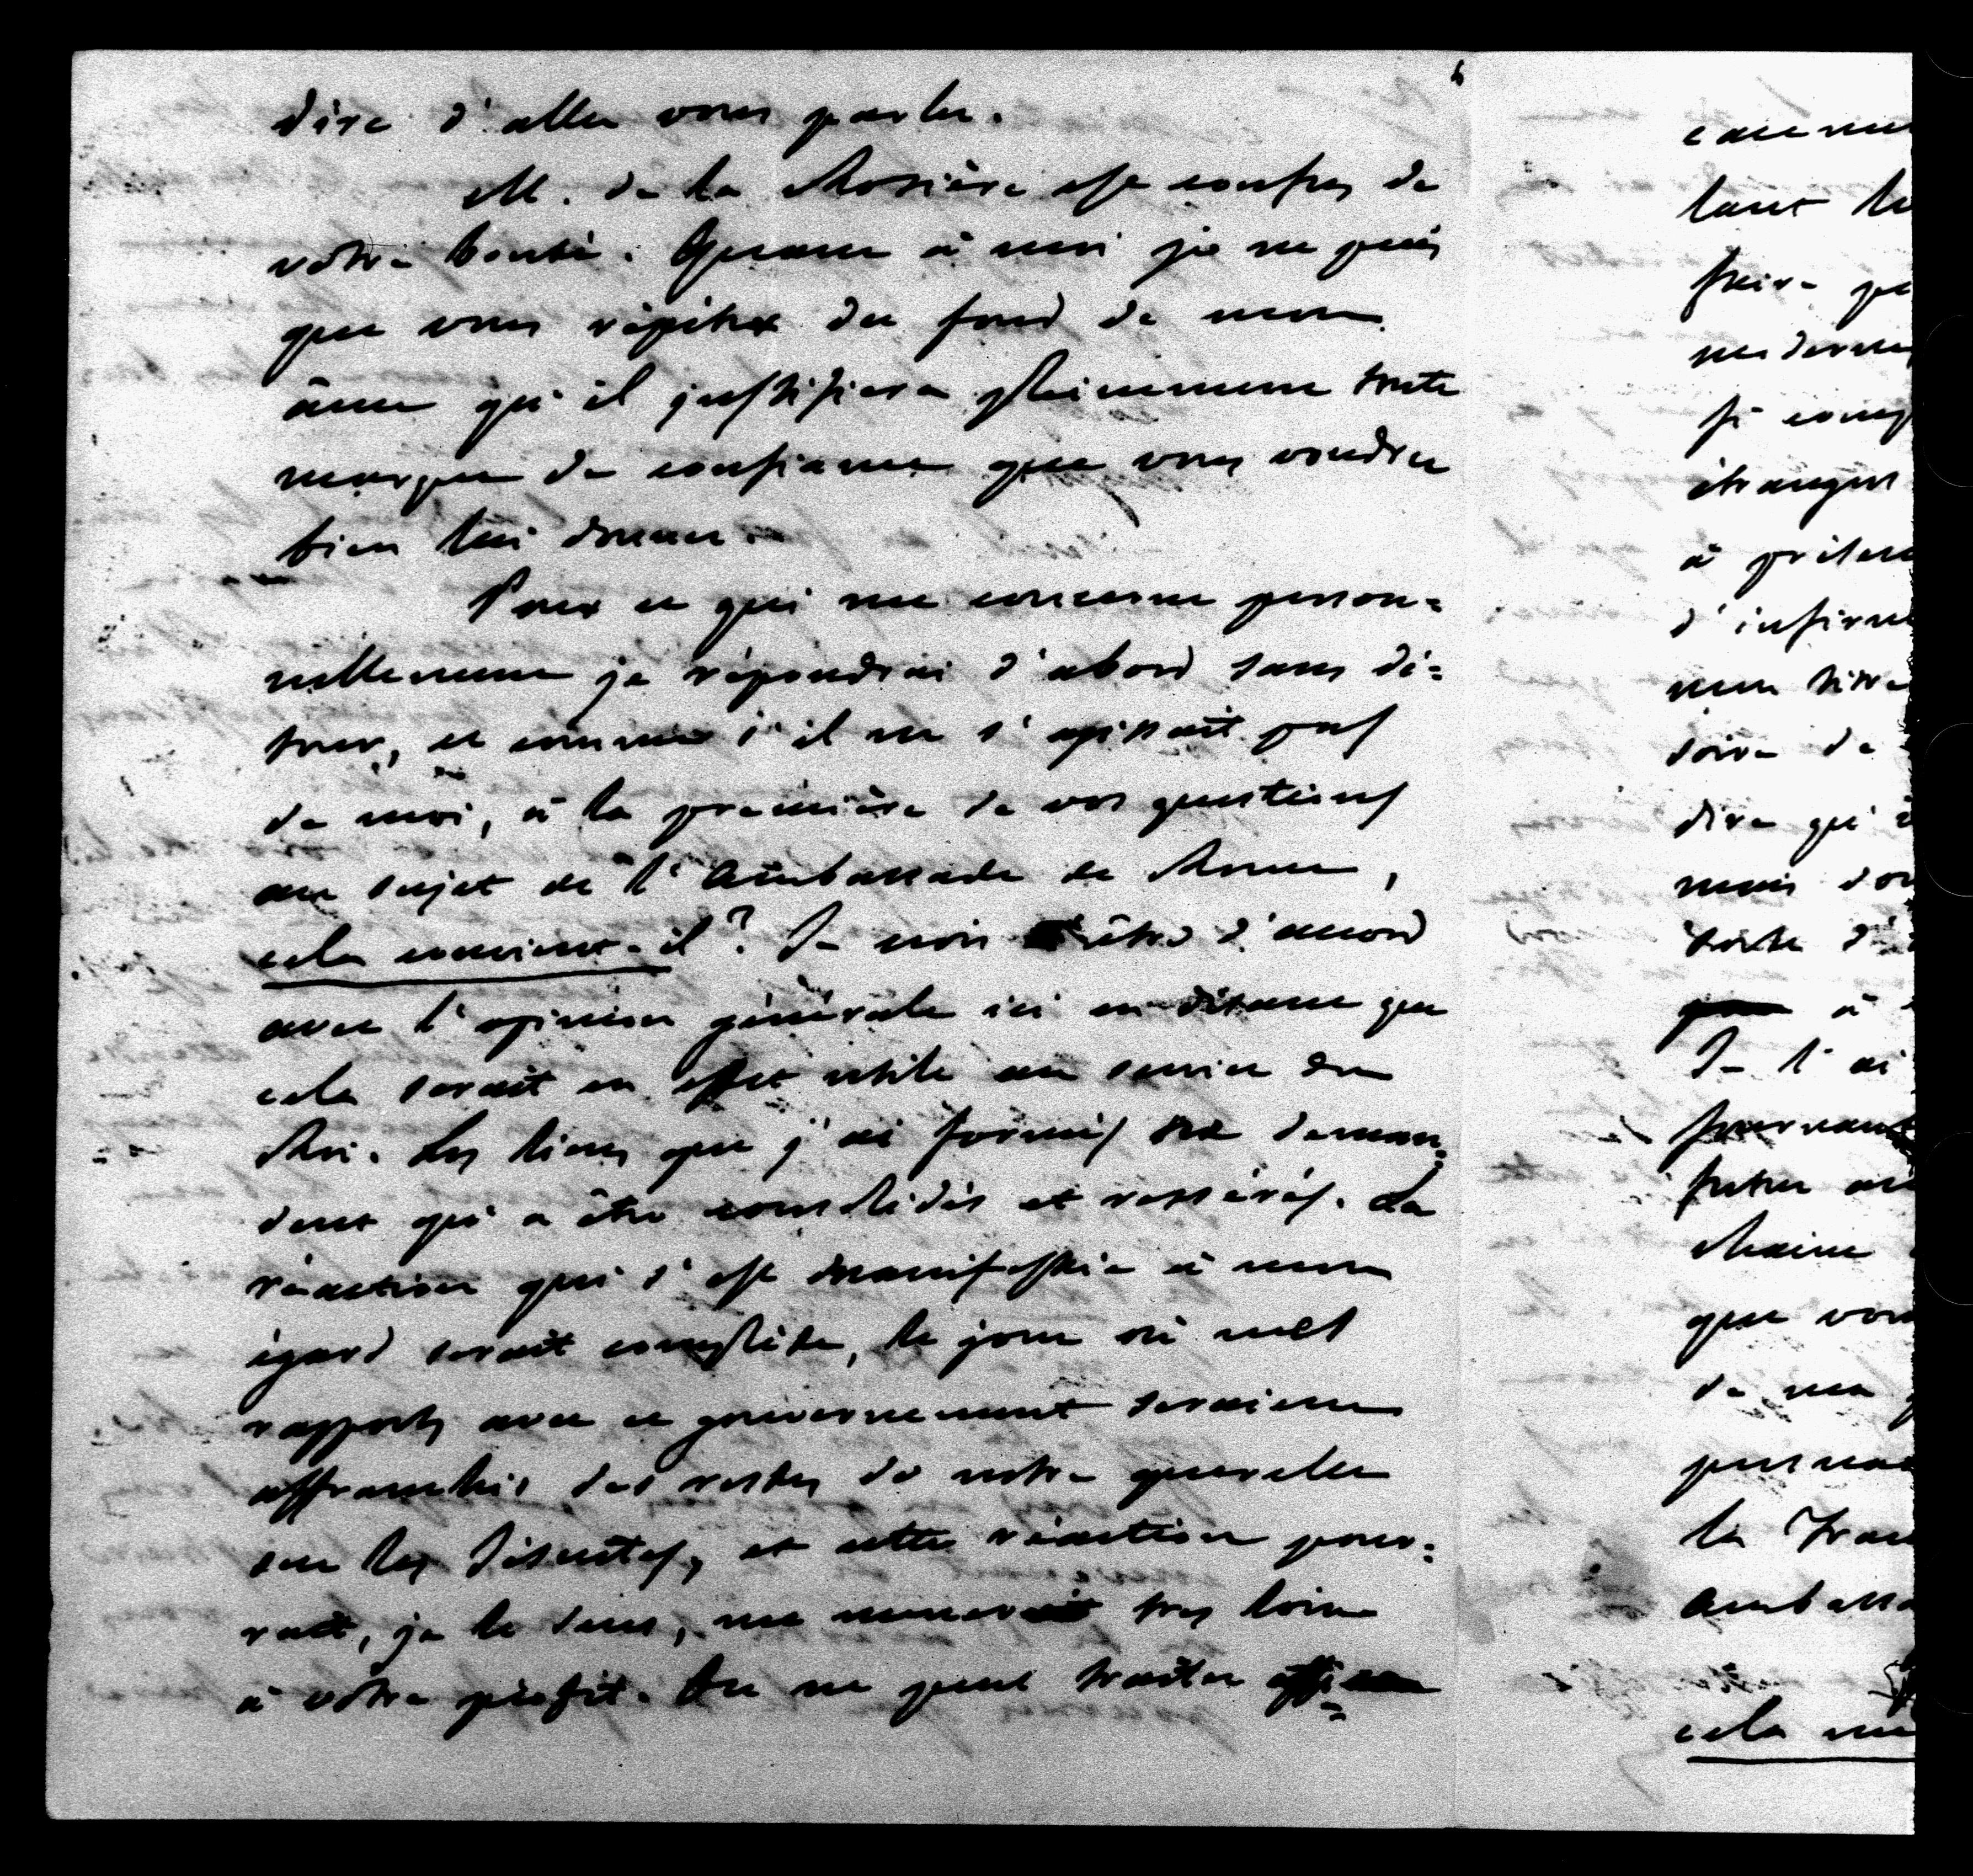 dire d'aller vous parler.
M. de la Rosière est confus de
votre bonté. Quant à moi je ne puis
que vous répéter du fond de mon
âme qu'il justifiera pleinement toute
marque de confiance que vous voudrez
bien lui donner.
Pour ce qui me concerne person=
nellement je répondrai d'abord sans dé=
tour, et comme s'il ne s'agissait pas
de moi, à la première de vos questions
au sujet de l'Ambassade de Rome,
cela convient-il? Je crois être d'accord
avec l'opinion générale ici en disant que
cela serait en effet utile au service du
Roi. Les liens que j'ai formés ne deman=
dent qu'a être consolidés et resserés. La
réaction qui s'est manifestée à mon
égard serait complète, le jour où mes
rapports avec ce gouvernement seraient
affranchis des restes de notre querelle
sur les Jésuites, et cette réaction pour=
rait, je le sens, me mener très loin
à votre profit. On ne peut traiter
lant
faire
si
étranger
à
d'infirm
mon titre
soire de
dire qu'
mais
à
Je l'ai
que vous
de ma
la Fran
Ambassa
cela